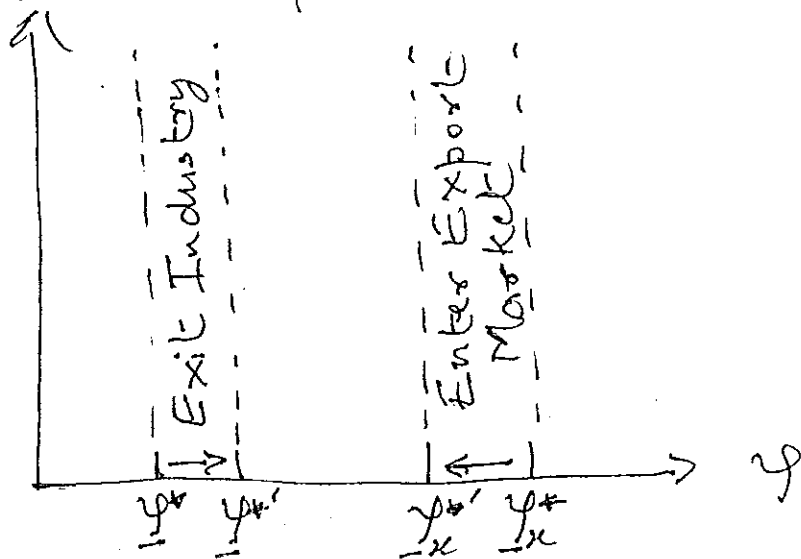 Exit Industry
Enter Export
Market
φ* φ*' φx*' φx*
φ